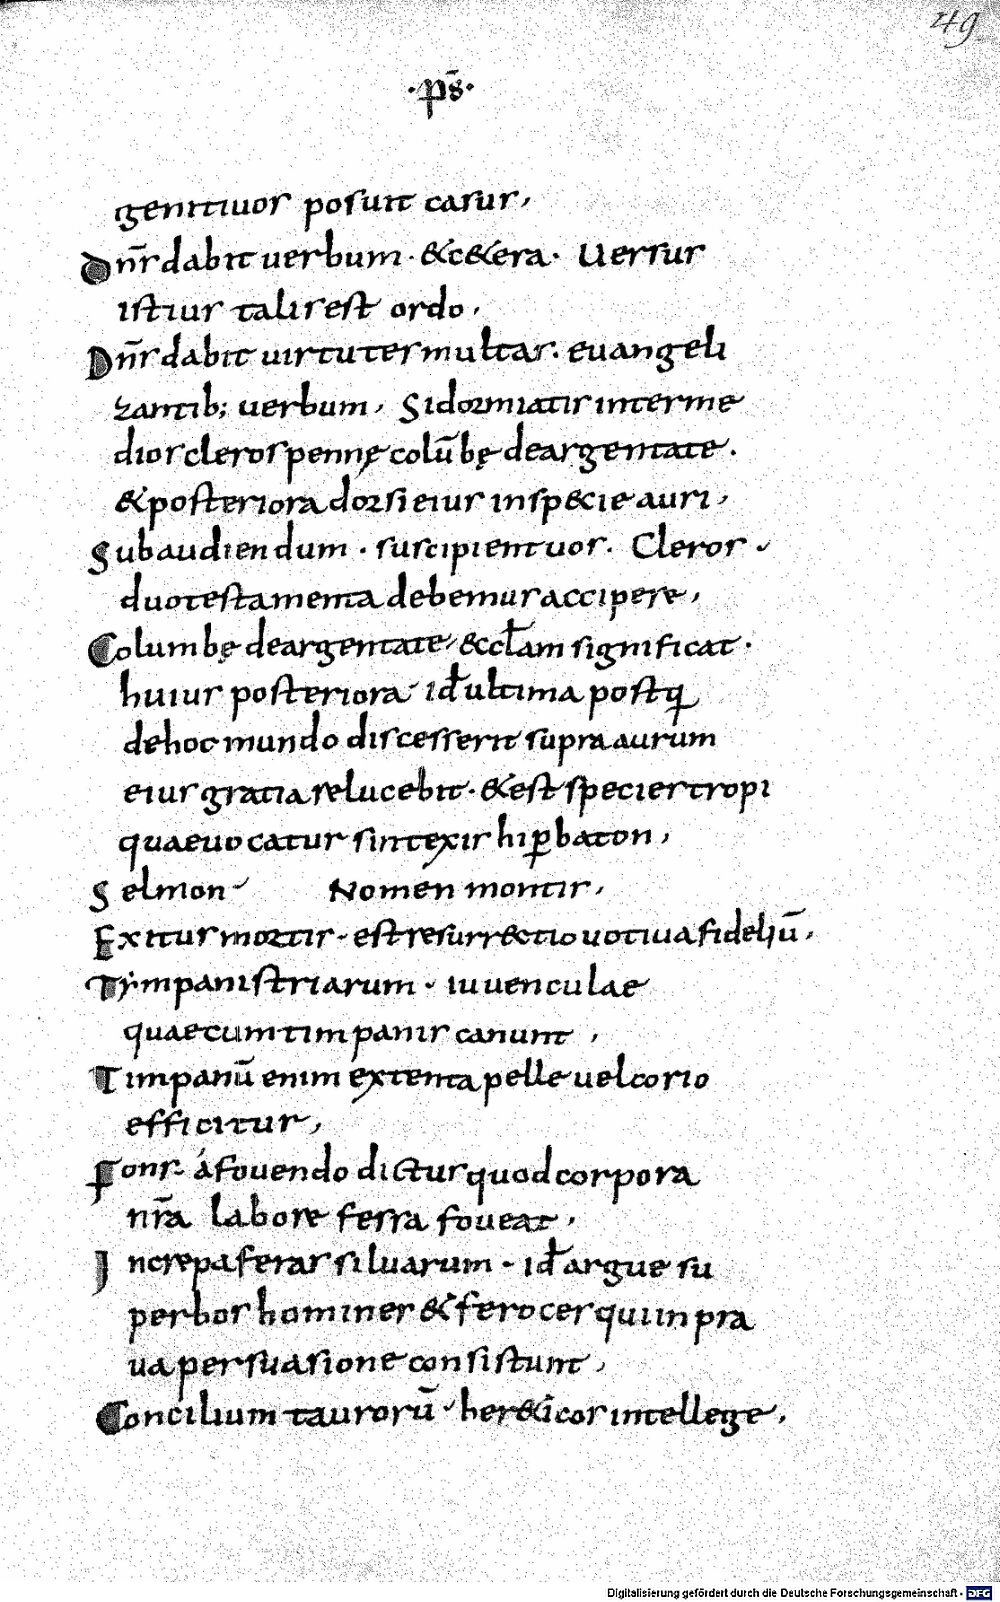 49
·p̄s·
genitiuos posuit casus,
Dn̄s dabit uerbum · &c&era · Uersus
istius talis est ordo,
Dn̄s dabit uirtutes multas. euangeli
zantib; uerbum, Si dormiatis interme
dios cleros pennę colūbę deargentate.
& posteriora dorsi eius in specie auri,
Subaudiendum · suscipient uos. Cleros
duo testamenta debemus accipere,
Columbę deargentate ęcclam significat.
huius posteriora id ultima postq
de hoc mundo discesserit supra aurum
eius gratia relucebit · & est species tropi
quae uocatur sintexis hip̱baton,
Selmon Nomen montis,
Exitus mortis · est resurrectio uotiua fideliū,
Tympanistriarum · iuuenculae
quae cum timpanis canunt,
Timpanū enim extenta pelle uel corio
efficitur,
Fons · á fouendo dictus quod corpora
nr̄a labore fessa foueat,
Increpa feras siluarum · id argue su
perbos homines & feroces qui in pra
ua persuasione consistunt,
Concilium taurorū her&icos intellege,
Digitalisierung gefördert durch die Deutsche Forschungsgemeinschaft - DFG